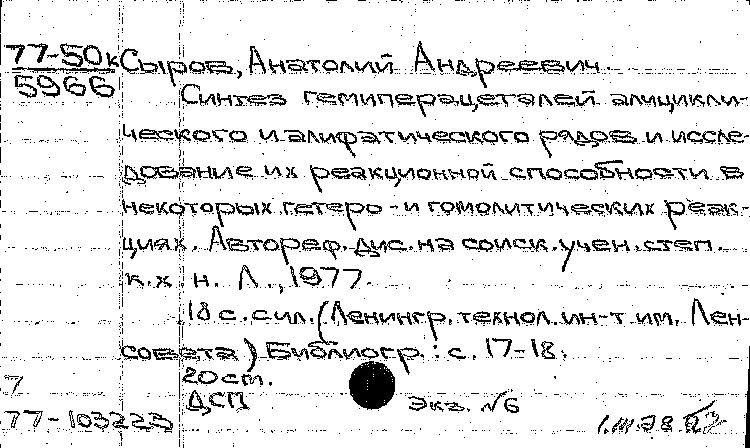 77-50к Сыров, Анатолий Андреевич.
5966
Синтез гемиперацеталей алицикли-
ческого и алифатического рядов и иссле-
дование их реакционной способности в
некоторых гетеро-и гомолитических реак-
циях. Автореф. дис. на соиск. учен. степ.
к.х.н. Л., 1977.
18 с. с ил. (Ленингр. технол. ин-т им. Лен-
совета) Библиогр.: с. 17-18.
20 cm.
7
ДСП
Экз. №6
77-103223
1.III.78